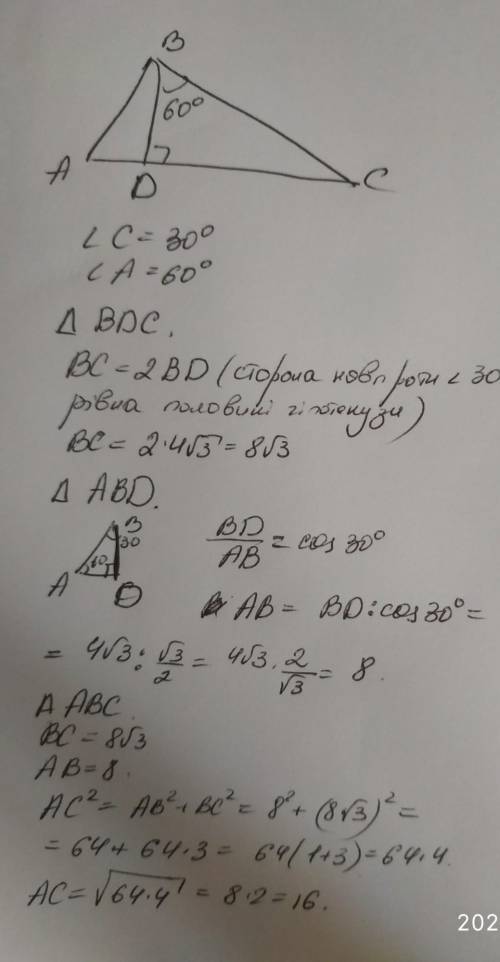 B
60°
A
D
C
∠C = 30°
∠A = 60°
Δ BDC.
BC = 2BD (сторона навпроти ∠30
рівна половині гіпотенузи)
BC = 2·4√3 = 8√3
Δ ABD.
B
30
60
A
D
BD/AB = cos 30°
AB = BD : cos 30° =
= 4√3 : √3/2 = 4√3 · 2/√3 = 8.
Δ ABC.
BC = 8√3
AB = 8.
AC² = AB² + BC² = 8² + (8√3)² =
= 64 + 64·3 = 64(1+3) = 64·4.
AC = √64·4 = 8·2 = 16.
202